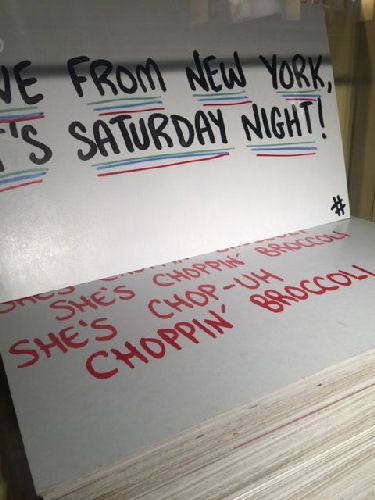 VE FROM NEW YORK,
T'S SATURDAY NIGHT!
#
SHE'S CHOPPIN' BROCCOLI
SHE'S CHOPPIN' BROCCOLI
SHE'S CHOP-UH
CHOPPIN' BROCCOLI